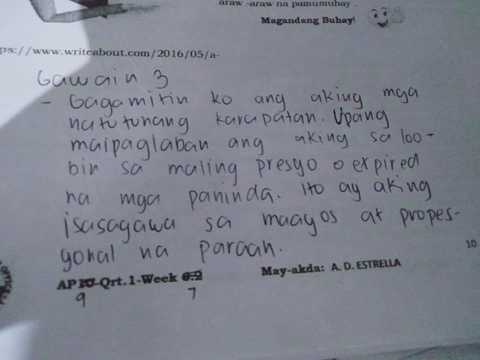 araw -araw na pamumuhay .
Magandang Buhay!
ps://www.writeabout.com/2016/05/a-
Gawain 3
- Gagamitin ko ang aking mga
natutunang karapatan. Upang
maipaglaban ang aking saloo-
bin sa maling presyo o expired
na mga paninda. Ito ay aking
isasagawa sa maayos at propes-
yonal na paraan.
10
AP10-Qrt.1-Week 6.2 May-akda: A. D. ESTRELLA
9 7